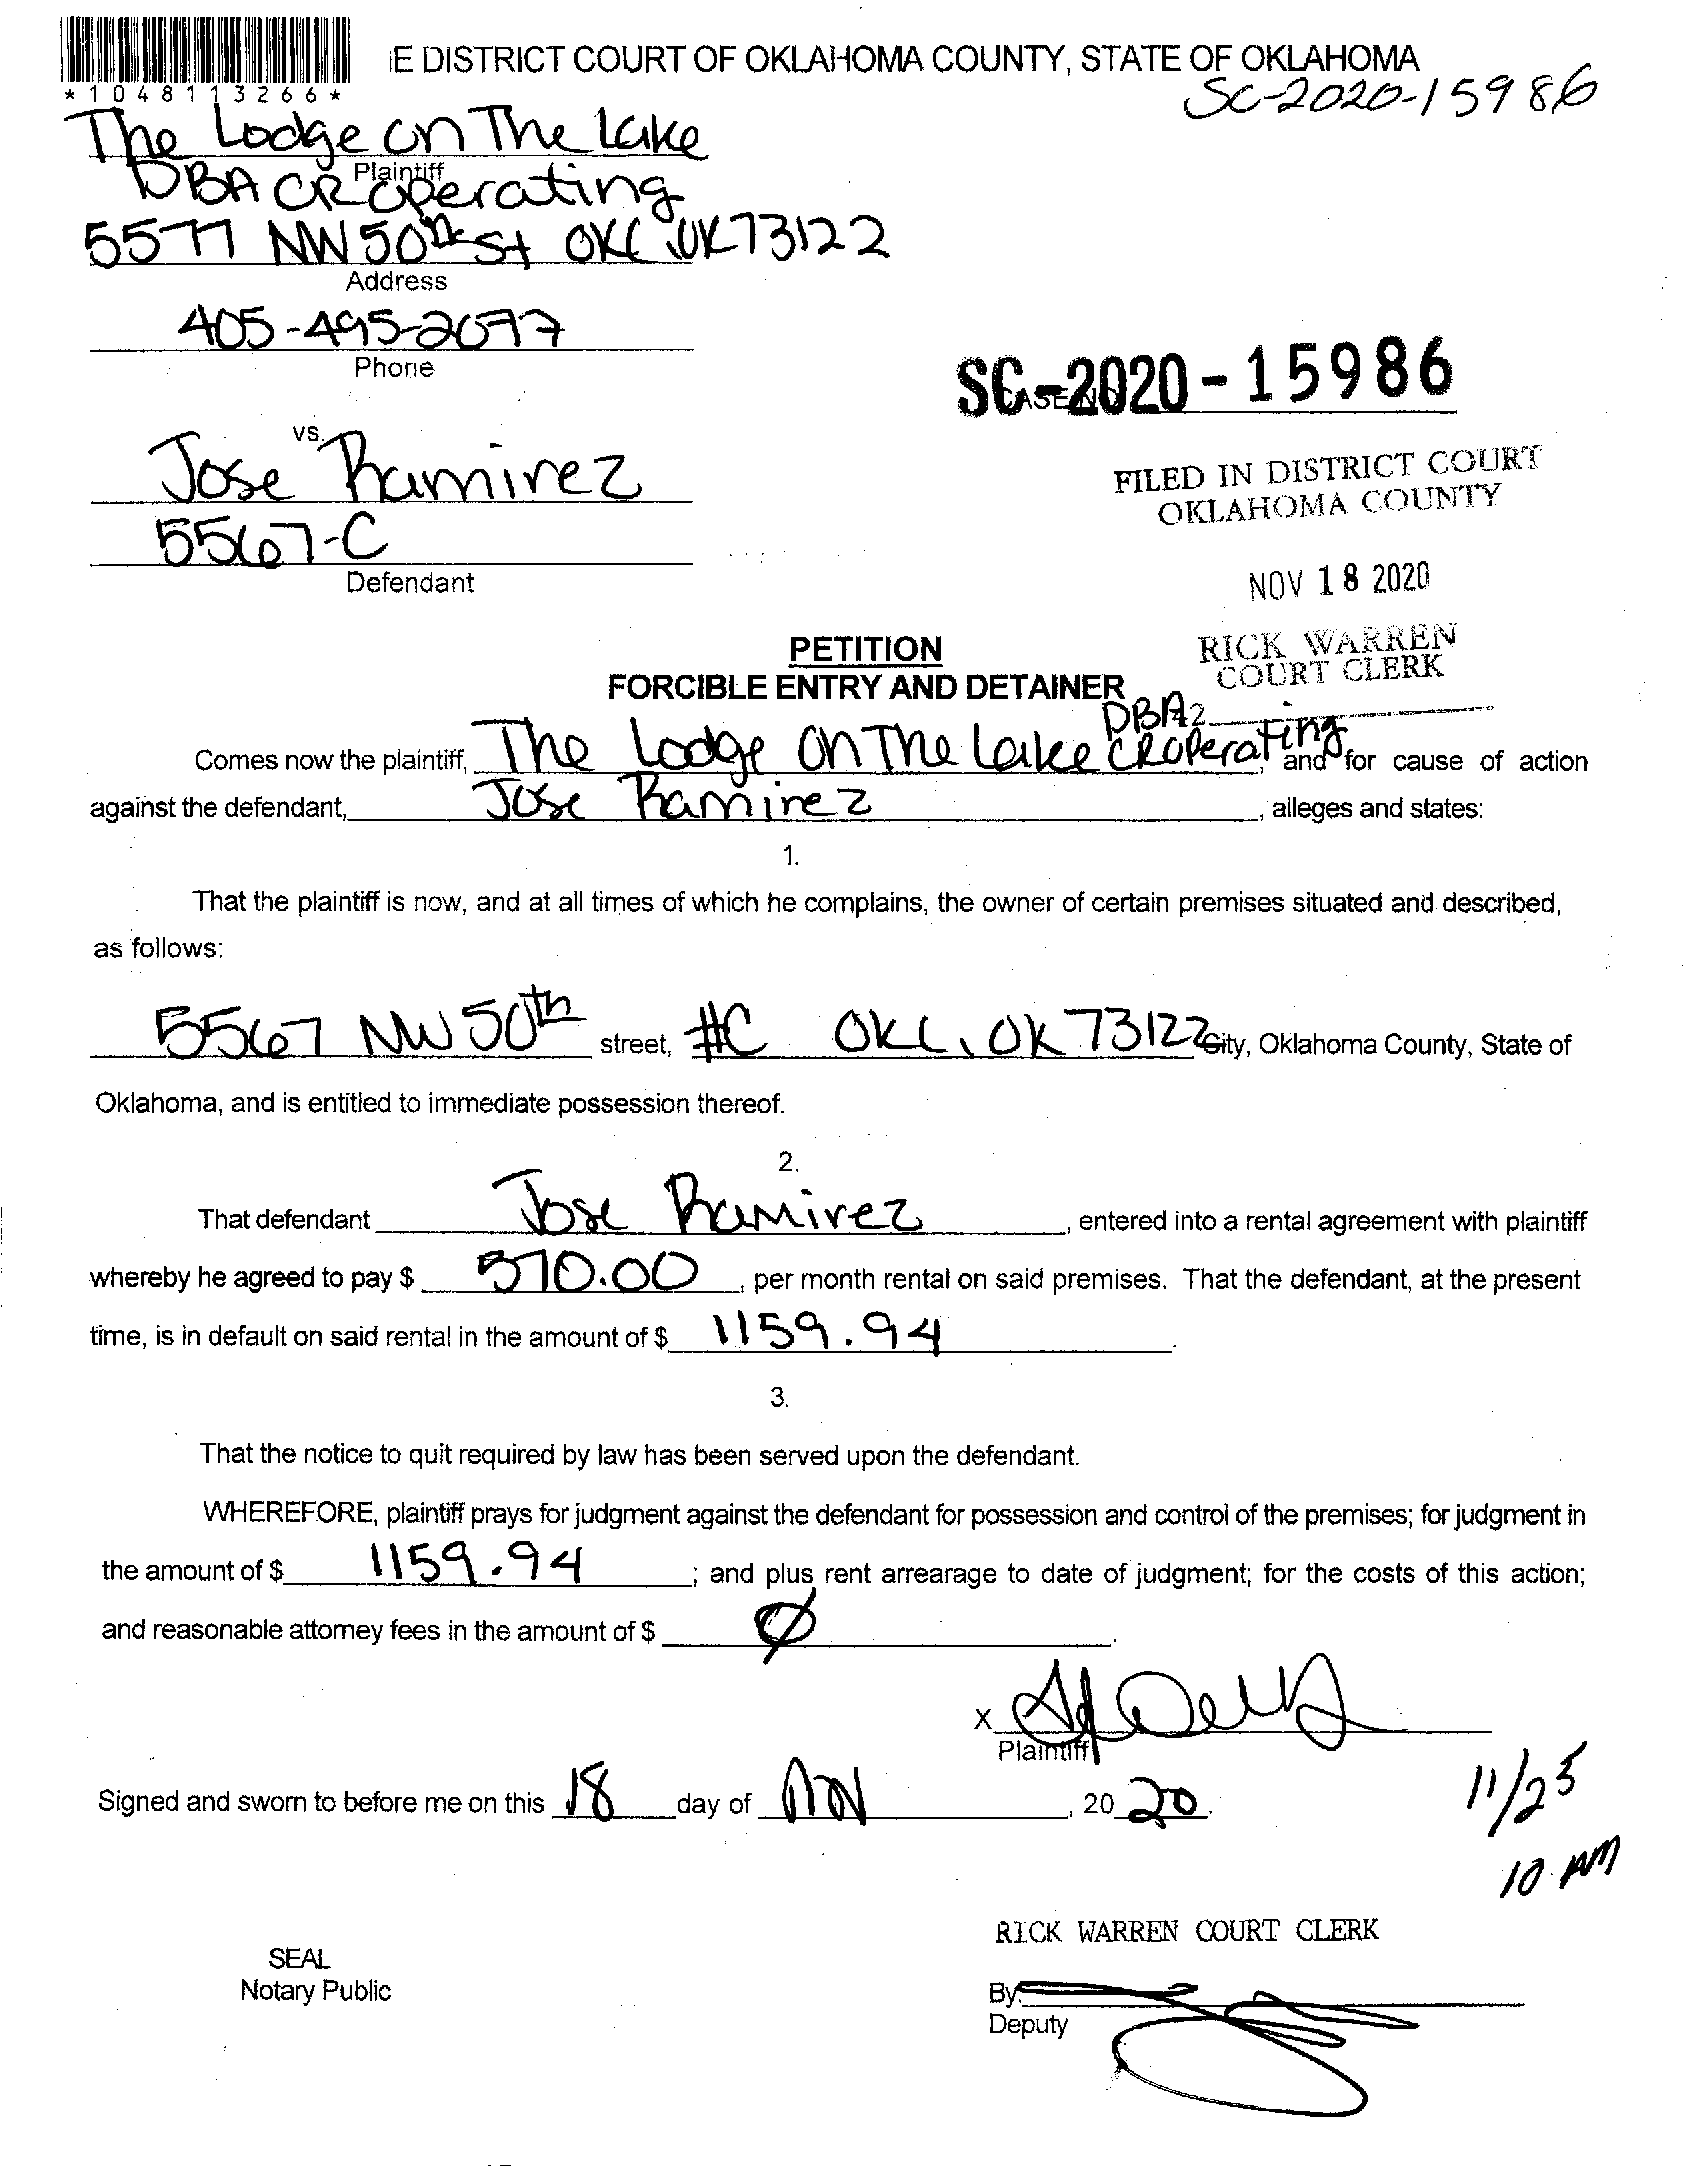 E DISTRICT COURT OF OKLAHOMA COUNTY, STATE OF OKLAHOMA
*1048113266*
SC-2020-15986
The Lodge on The Lake
Plaintiff
DBA CR Operating
5577 NW 50th St OKC OK 73122
Address
405-495-2077
Phone
SC-2020-15986
CASE NO
vs.
Jose Ramirez
5567-C
Defendant
FILED IN DISTRICT COURT
OKLAHOMA COUNTY
NOV 18 2020
RICK WARREN
COURT CLERK
PETITION
FORCIBLE ENTRY AND DETAINER
Comes now the plaintiff, The Lodge On The Lake DBA CR Operating, and for cause of action
against the defendant, Jose Ramirez, alleges and states:
1.
That the plaintiff is now, and at all times of which he complains, the owner of certain premises situated and described,
as follows:
5567 NW 50th street, #C OKC, OK 73122 City, Oklahoma County, State of
Oklahoma, and is entitled to immediate possession thereof.
2.
That defendant Jose Ramirez, entered into a rental agreement with plaintiff
whereby he agreed to pay $ 570.00, per month rental on said premises. That the defendant, at the present
time, is in default on said rental in the amount of $ 1159.94.
3.
That the notice to quit required by law has been served upon the defendant.
WHEREFORE, plaintiff prays for judgment against the defendant for possession and control of the premises; for judgment in
the amount of $ 1159.94; and plus rent arrearage to date of judgment; for the costs of this action;
and reasonable attorney fees in the amount of $ Ø.
X
Plaintiff
Signed and sworn to before me on this 18 day of Nov, 20 20.
11/25
10 AM
RICK WARREN COURT CLERK
SEAL
Notary Public
By:
Deputy